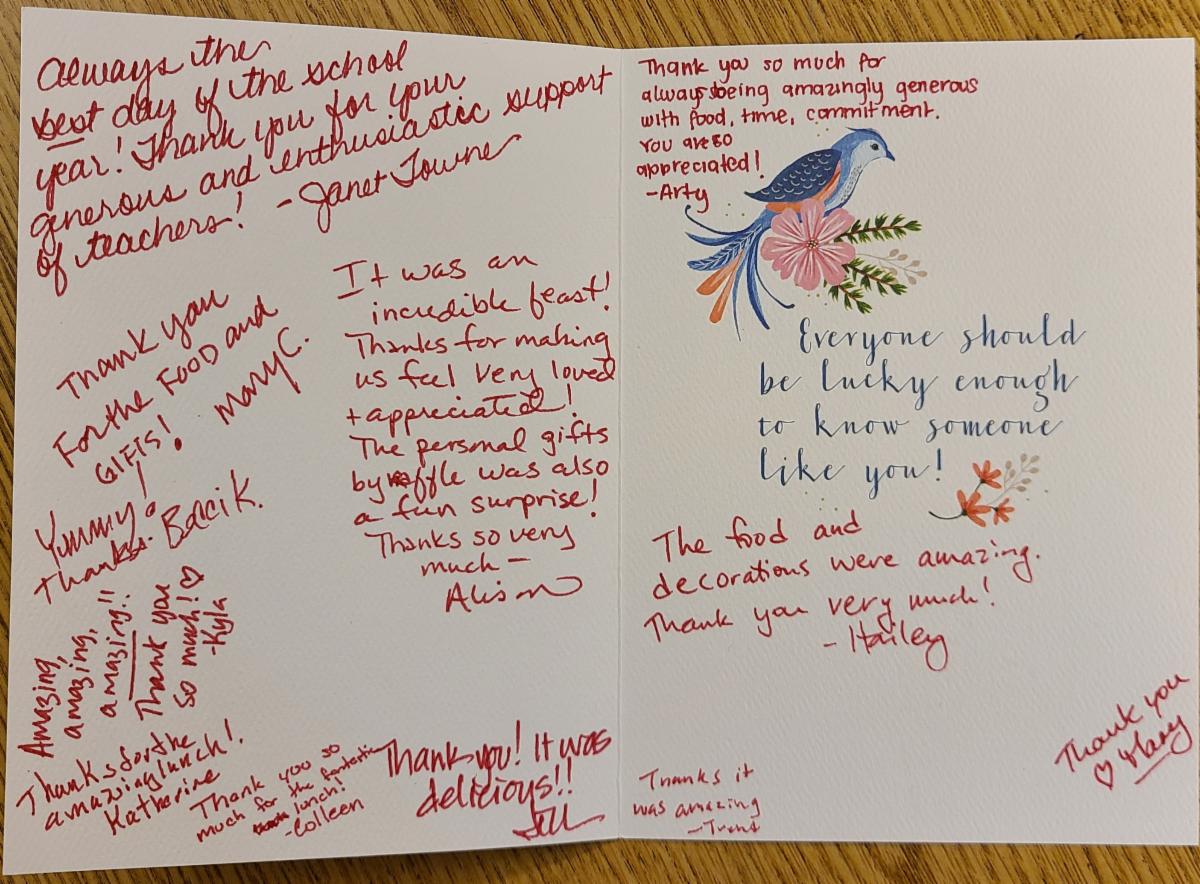 Always the
best day of the school
year! Thank you for your
generous and enthusiastic support
of teachers! - Janet Towne
Thank you
For the FOOD and
GIFTS! Mary C.
Yummy!
Thanks.
It was an
incredible feast!
Thanks for making
us feel very loved
+ appreciated!
The personal gifts
by raffle was also
a fun surprise!
Thanks so very
much -
Alison
Amazing,
amazing,
amazing!!
Thank you
so much! ♡
-Kyla
Thanks for the
amazing lunch!
Katherine
Thank you so
much for the fantastic
lunch!
-Colleen
Thank you! It was
delicious!!
Jill
Thank you so much for
always being amazingly generous
with food, time, commitment.
You are so
appreciated!
-Arty
Everyone should
be lucky enough
to know someone
like you!
The food and
decorations were amazing.
Thank you very much!
- Hailey
Thanks it
was amazing
- Trent
Thank you
♡ Mary